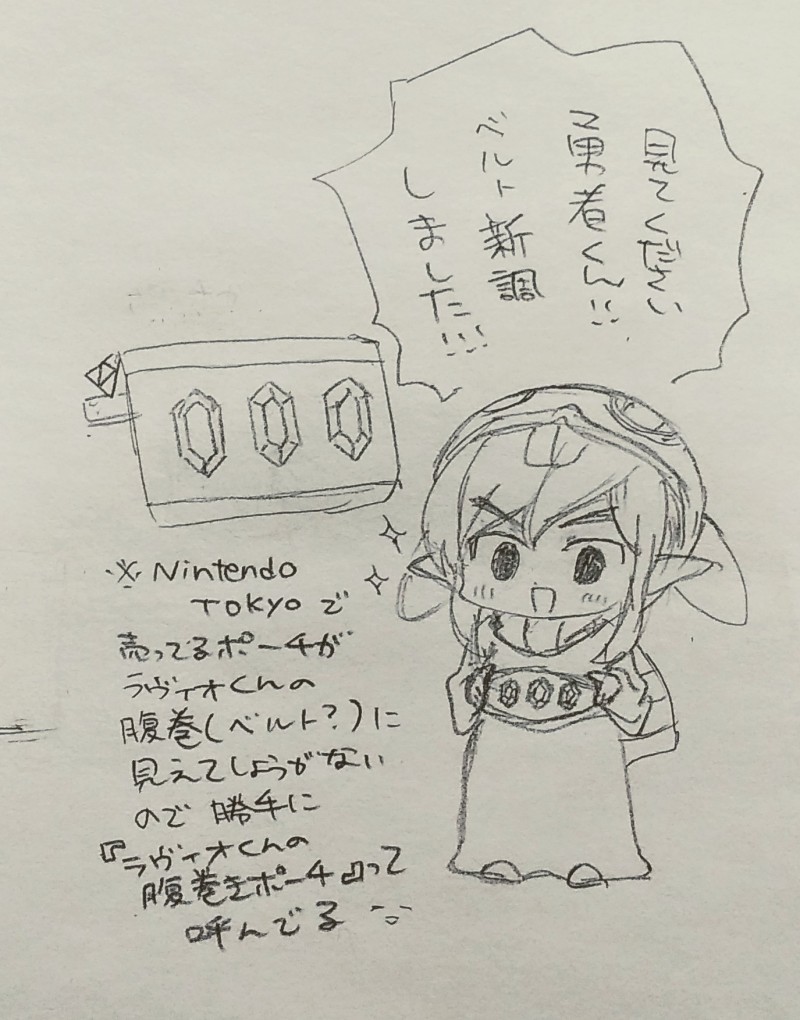 見てください
勇者くん!!
ベルト新調
しました!!!
※Nintendo
TOKYOで
売ってるポーチが
ラヴィオくんの
腹巻(ベルト?)に
見えてしょうがない
ので勝手に
『ラヴィオくんの
腹巻きポーチ』って
呼んでる